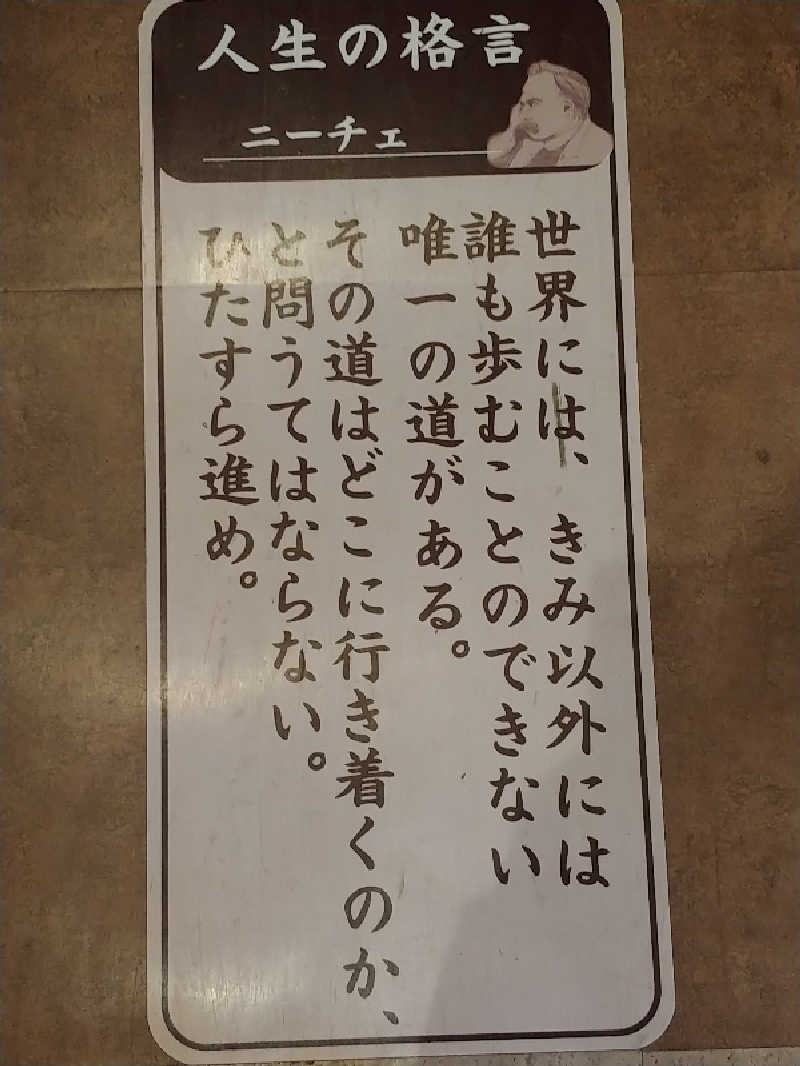 人生の格言
ニーチェ
世界には、きみ以外には
誰も歩むことのできない
唯一の道がある。
その道はどこに行き着くのか、
と問うてはならない。
ひたすら進め。